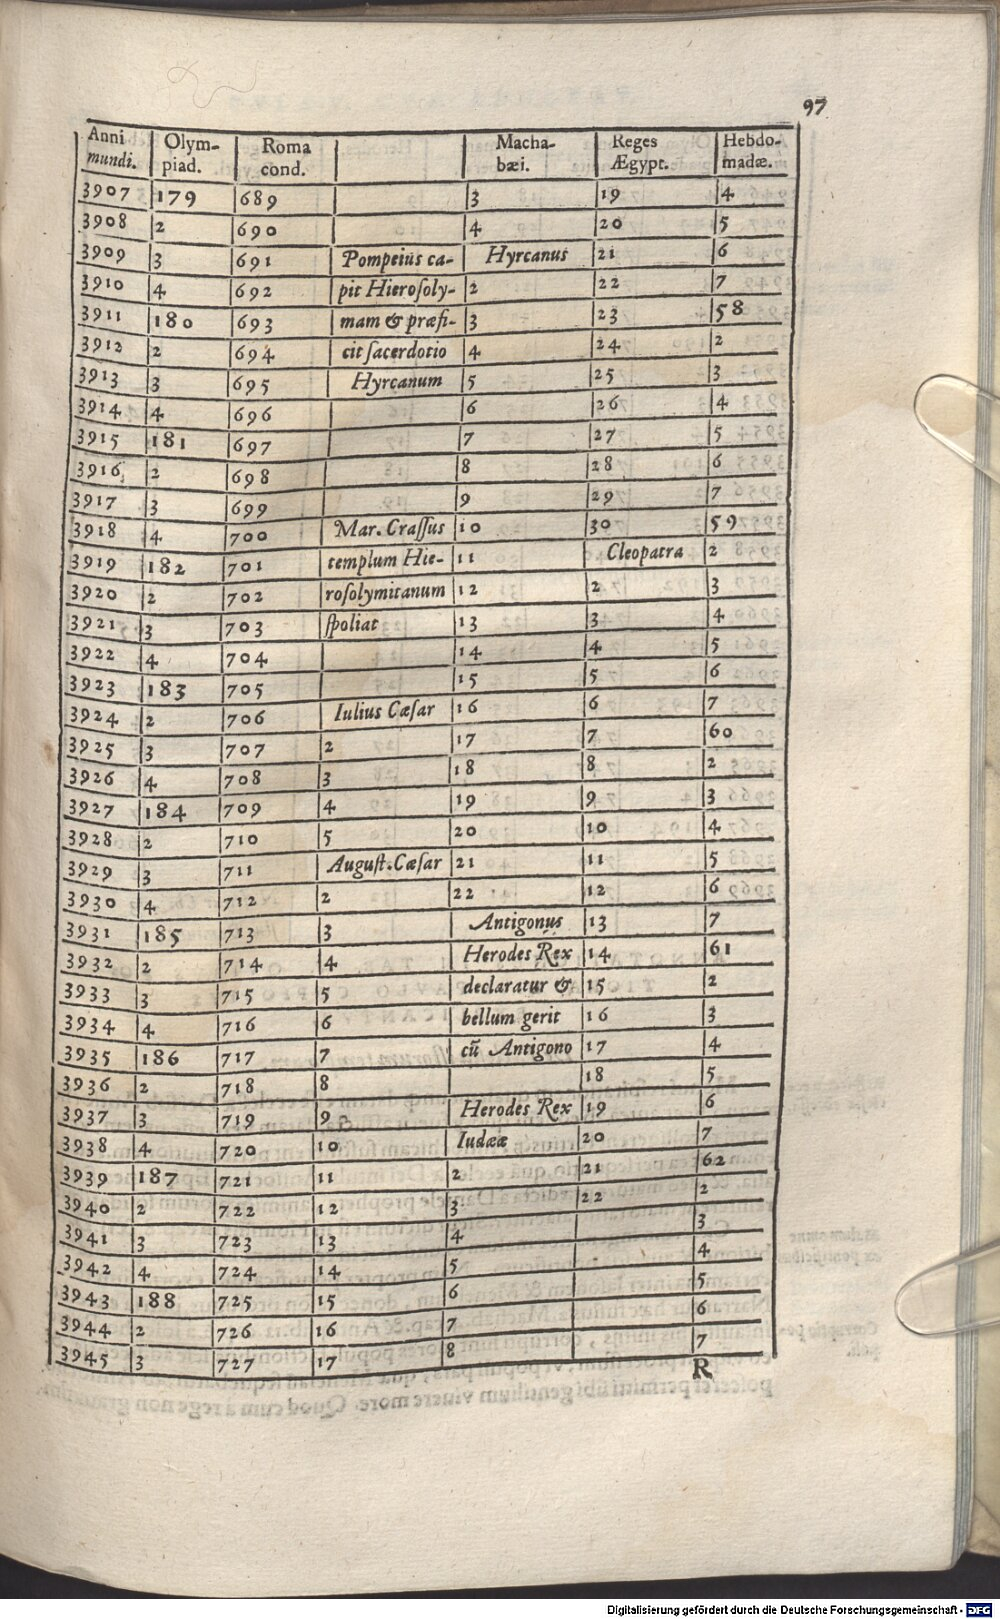 97
Anni mundi. | Olym-piad. | Roma cond. | | Macha-bæi. | Reges Ægypt. | Hebdo-madæ.
3907 | 179 | 689 | | 3 | 19 | 4
3908 | 2 | 690 | | 4 | 20 | 5
3909 | 3 | 691 | Pompeius ca- | Hyrcanus | 21 | 6
3910 | 4 | 692 | pit Hierosoly- | 2 | 22 | 7
3911 | 180 | 693 | mam & præfi- | 3 | 23 | 58
3912 | 2 | 694 | cit sacerdotio | 4 | 24 | 2
3913 | 3 | 695 | Hyrcanum | 5 | 25 | 3
3914 | 4 | 696 | | 6 | 26 | 4
3915 | 181 | 697 | | 7 | 27 | 5
3916 | 2 | 698 | | 8 | 28 | 6
3917 | 3 | 699 | | 9 | 29 | 7
3918 | 4 | 700 | Mar. Crassus | 10 | 30 | 59
3919 | 182 | 701 | templum Hie- | 11 | Cleopatra | 2
3920 | 2 | 702 | rosolymitanum | 12 | 2 | 3
3921 | 3 | 703 | spoliat | 13 | 3 | 4
3922 | 4 | 704 | | 14 | 4 | 5
3923 | 183 | 705 | | 15 | 5 | 6
3924 | 2 | 706 | Iulius Cæsar | 16 | 6 | 7
3925 | 3 | 707 | 2 | 17 | 7 | 60
3926 | 4 | 708 | 3 | 18 | 8 | 2
3927 | 184 | 709 | 4 | 19 | 9 | 3
3928 | 2 | 710 | 5 | 20 | 10 | 4
3929 | 3 | 711 | August. Cæsar | 21 | 11 | 5
3930 | 4 | 712 | 2 | 22 | 12 | 6
3931 | 185 | 713 | 3 | Antigonus | 13 | 7
3932 | 2 | 714 | 4 | Herodes Rex | 14 | 61
3933 | 3 | 715 | 5 | declaratur & | 15 | 2
3934 | 4 | 716 | 6 | bellum gerit | 16 | 3
3935 | 186 | 717 | 7 | cū Antigono | 17 | 4
3936 | 2 | 718 | 8 | | 18 | 5
3937 | 3 | 719 | 9 | Herodes Rex | 19 | 6
3938 | 4 | 720 | 10 | Iudææ | 20 | 7
3939 | 187 | 721 | 11 | 2 | 21 | 62
3940 | 2 | 722 | 12 | 3 | 22 | 2
3941 | 3 | 723 | 13 | 4 | | 3
3942 | 4 | 724 | 14 | 5 | | 4
3943 | 188 | 725 | 15 | 6 | | 5
3944 | 2 | 726 | 16 | 7 | | 6
3945 | 3 | 727 | 17 | 8 | | 7
R
Digitalisierung gefördert durch die Deutsche Forschungsgemeinschaft - DFG